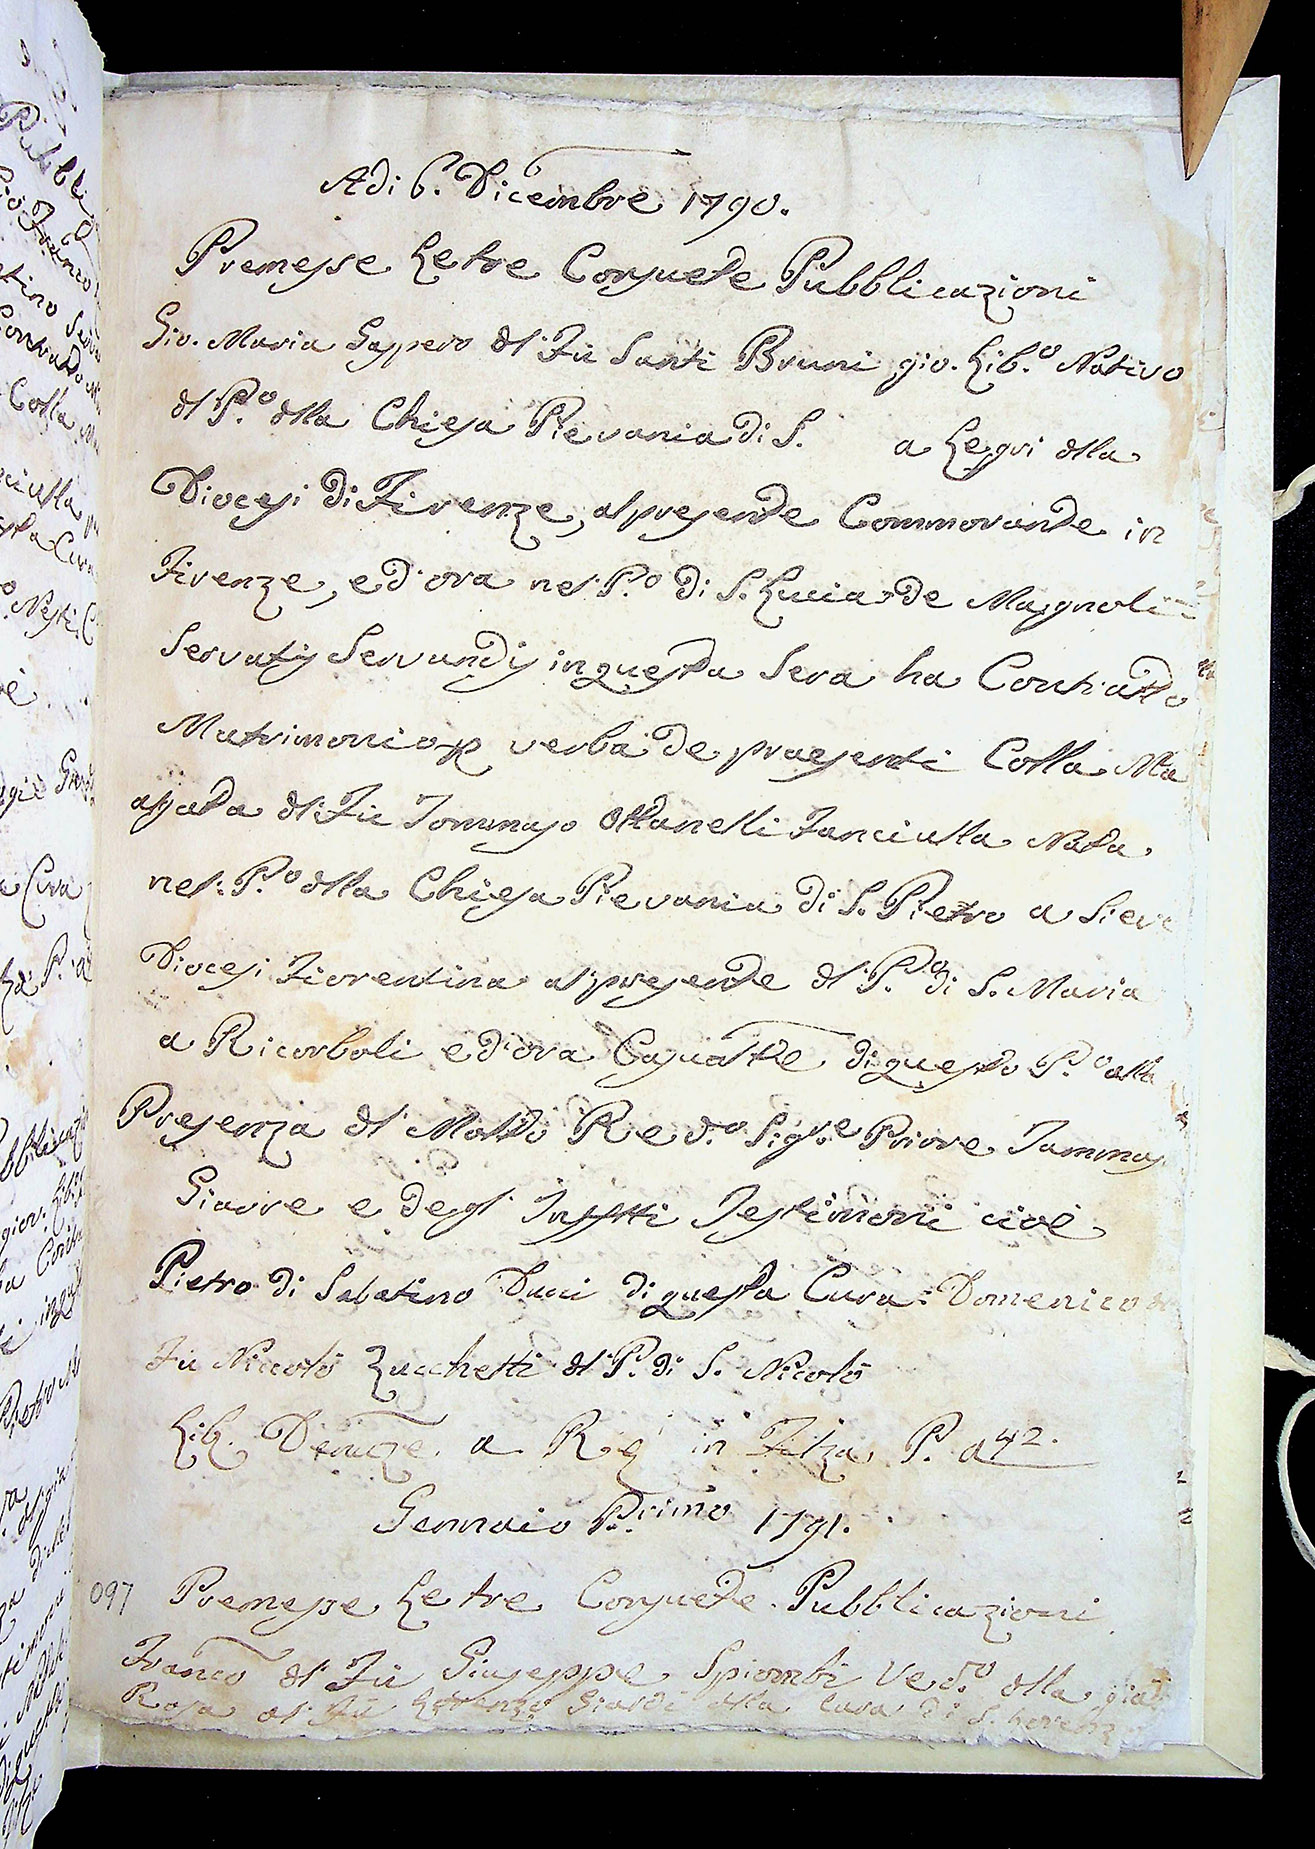 Adi 6. Dicembre 1790.
Premesse Le tre Consuete Pubblicazioni
Gio. Maria Gaspero dl Fu Santi Bruni gio. Lib.o Nativo
dl P.o dlla Chiesa Pievania di S. a Legri dlla
Diocesi di Firenze, al presente Commorante in
Firenze, e d'ora nel P.o di S. Lucia de Magnoli
Servatis Servandis in questa Sera ha Contratto
Matrimonio p verba de praesenti Colla Ma
Agata dl Fu Tommaso Ottanelli Fanciulla Nata
nel P.o dlla Chiesa Pievania di S. Pietro a Sieve
Diocesi Fiorentina al presente dl P.o di S. Maria
a Ricorboli e d'ora Casuatte di questo P.o alla
Presenza dl Molto Re do. Sig.re Priore Tommas
Giarre e degl' Inftti Testimoni cioè
Pietro di Sabatino Duci di questa Cura: Domenico
Fu Niccolò Zucchetti dl P. di S. Nicolò
Lib. a in Filza P. a 42.
Gennaio P.rimo 1791.
097 Premesse Le tre Consuete Pubblicazioni
Franco dl Fu Giuseppe Spiombi Ved.o dlla
Rosa dl Fu Lorenzo Giardi dlla Cura di S. Lorenz